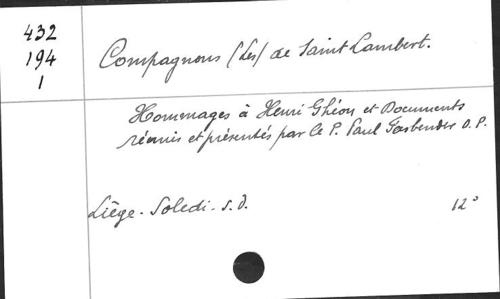 432
194
1
Compagnons (Les) de Saint Lambert.
Hommages à Henri Ghéon et Documents
réunis et présentés par le P. Paul Fasbender O.P.
Liège - Soledi - s.d.
12°